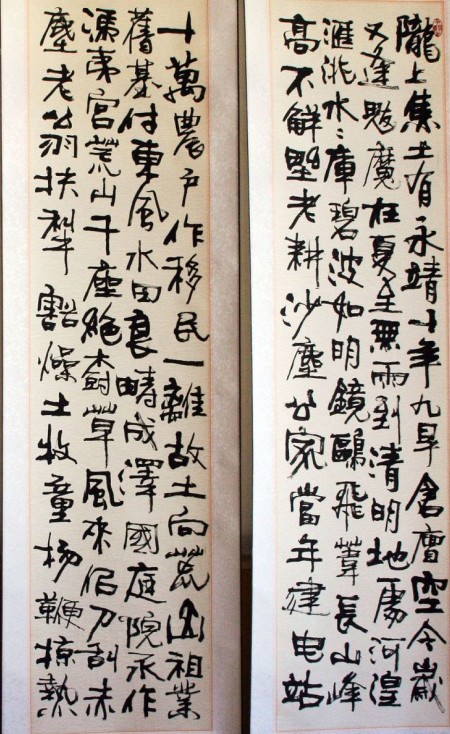 隴上焦土有永靖十年九旱倉廩空今歲
又逢魃魔在夏至無雨到清明地處河湟
滙洮水〻庫碧波如明鏡鷗飛葦長山峰
高不鮮野老耕沙塵公家當年建电站
十萬農户作移民一離故土向荒山祖業
舊基付東風水田良疇成澤國庭院永作
馮夷宮荒山千座絶樹草風來似刀刮赤
塵老翁扶犁豁燥土牧童揚鞭掠熱